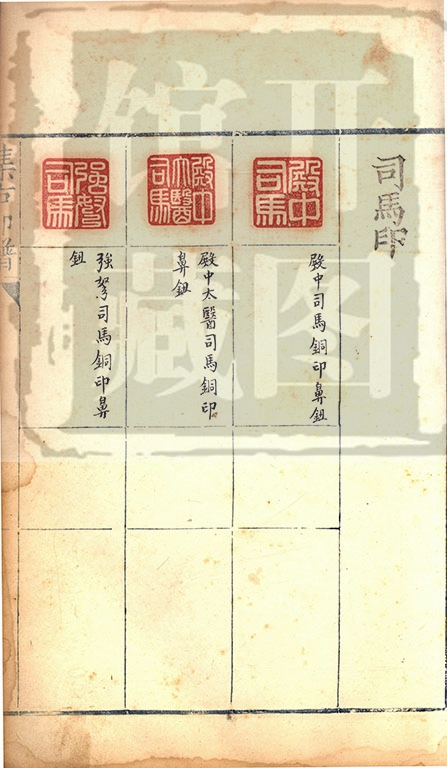 司馬印
殿中司馬
殿中司馬銅印鼻鈕
殿中太醫司馬
殿中太醫司馬銅印
鼻鈕
強弩司馬
強弩司馬銅印鼻
鈕
集古印譜